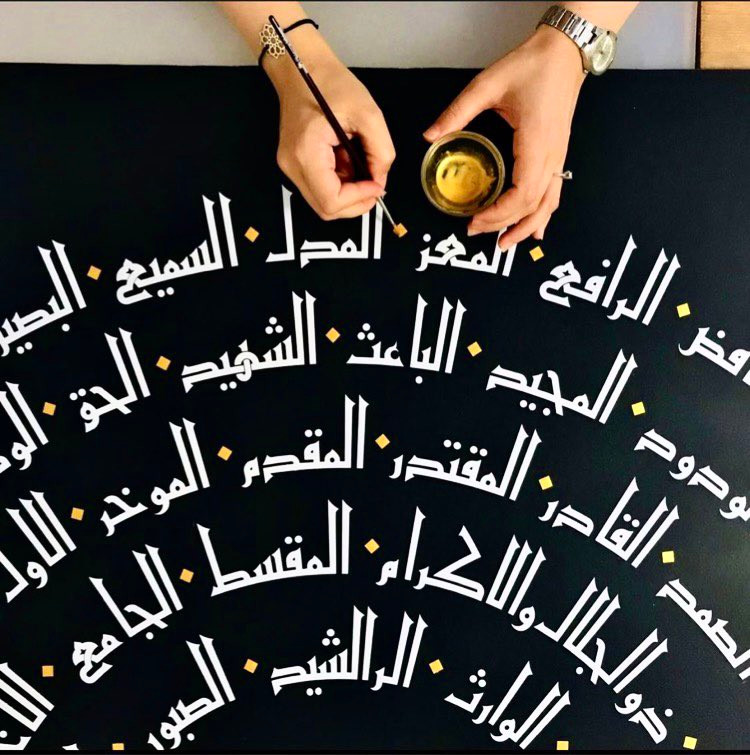 افض الرافع المعز المدل السميع البصير
ودود المجيد الباعث الشهيد الحق
الصمد القادر المقتدر المقدم الموخر الاول
ذوالجلال والاكرام المقسط الجامع
الوارث الرالشيد الصبور